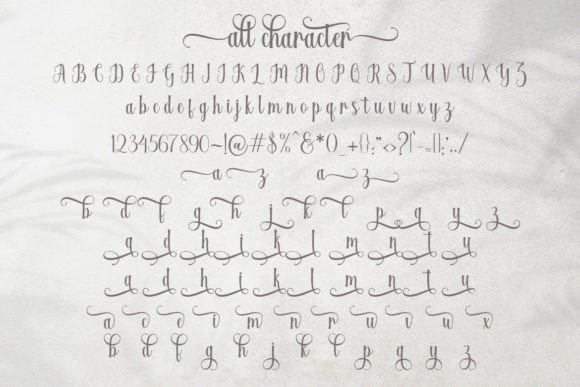 all character
A B C D E F G H I J K L M N O P Q R S T U V W X Y Z
a b c d e f g h i j k l m n o p q r s t u v w x y z
1234567890~!@#$%^&*()_+{}:"<>?[`-=[];',./
a z a z
b d f g h j k l p q y z
a d h i k l m n t y
a d h i k l m n t y
a c e i m n r u v u x
b d f g h j k l p q y z